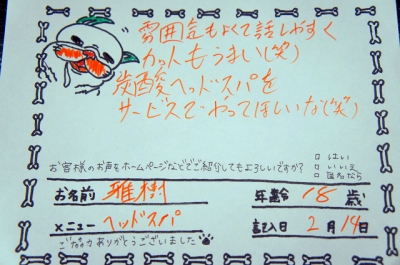 雰囲気もよくて話しやすく
カットもうまい(笑)
炭酸ヘッドスパを
サービスでやってほしいな(笑)
お客様のお声をホームページなどでご紹介してもよろしいですか?
□ はい
□ いいえ
□ 匿名なら
お名前 雅樹
年齢 18 歳
メニュー ヘッドスパ
記入日 2月19日
ご協力ありがとうございました